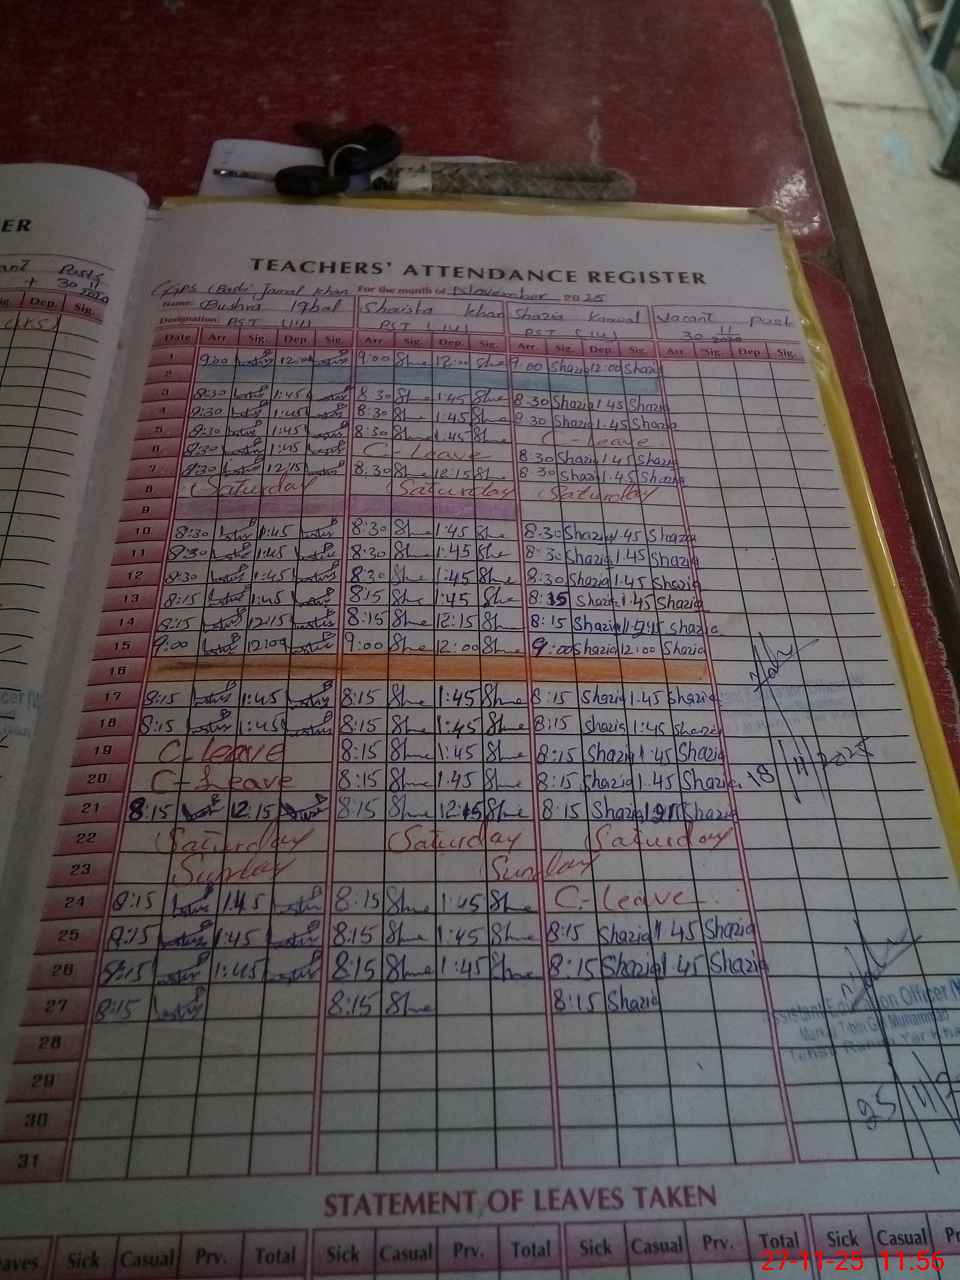 ER
TEACHERS' ATTENDANCE REGISTER
For the month of November 2025
Name: Bushra Iqbal Shaista Khan Shazia Kanwal Vacant Post
Designation: PST (14) PST (14) PST (14) 30 11 2020
Date Arr Sig. Dep Sig. Arr Sig. Dep. Sig. Arr. Sig. Dep. Sig. Arr. Sig. Dep. Sig.
1 9:00 12:00 9:00 She 12:00 She 9:00 Shazia 12:00 Shazia
2
3 8:30 1:45 8:30 She 1:45 She 8:30 Shazia 1:45 Shazia
4 8:30 1:45 8:30 She 1:45 She 8:30 Shazia 1:45 Shazia
5 8:30 1:45 8:30 She 1:45 She C-Leave
6 8:30 1:45 C-Leave 8:30 Shazia 1:45 Shazia
7 8:30 12:15 8:30 She 12:15 She 8:30 Shazia 1:45 Shazia
8 Saturday Saturday Saturday
9
10 8:30 1:45 8:30 She 1:45 She 8:30 Shazia 1:45 Shazia
11 8:30 1:45 8:30 She 1:45 She 8:30 Shazia 1:45 Shazia
12 8:30 1:45 8:30 She 1:45 She 8:30 Shazia 1:45 Shazia
13 8:15 1:45 8:15 She 1:45 She 8:15 Shazia 1:45 Shazia
14 8:15 12:15 8:15 She 12:15 She 8:15 Shazia Shazia
15 9:00 12:00 9:00 She 12:00 She 9:00 Shazia 12:00 Shazia
16
17 8:15 1:45 8:15 She 1:45 She 8:15 Shazia 1:45 Shazia
18 8:15 1:45 8:15 She 1:45 She 8:15 Shazia 1:45 Shazia
19 C-Leave 8:15 She 1:45 She 8:15 Shazia 1:45 Shazia
20 C-Leave 8:15 She 1:45 She 8:15 Shazia 1:45 Shazia
18/11/2025
21 8:15 12:15 8:15 She 12:15 She 8:15 Shazia Shazia
22 Saturday Saturday Saturday
23 Sunday Sunday
24 8:15 1:45 8:15 She 1:45 She C-Leave
25 8:15 1:45 8:15 She 1:45 She 8:15 Shazia 1:45 Shazia
26 8:15 1:45 8:15 She 1:45 She 8:15 Shazia 1:45 Shazia
27 8:15 8:15 She 8:15 Shazia
Assistant Education Officer
28
29
30
25/11/
31
STATEMENT OF LEAVES TAKEN
Sick Casual Prv. Total Sick Casual Prv. Total Sick Casual Prv. Total Sick Casual
27-11-25 11:56